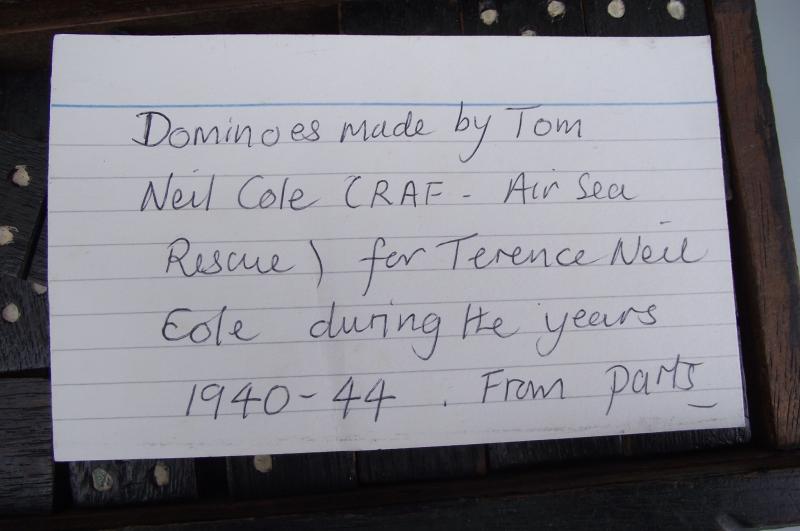 Dominoes made by Tom
Neil Cole (RAF - Air Sea
Rescue) for Terence Neil
Cole during the years
1940-44. From parts